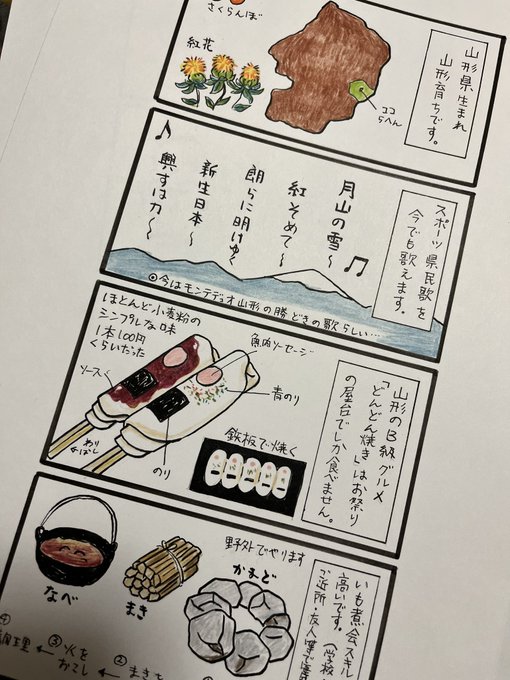 山形県生まれ
山形育ちです。
さくらんぼ
紅花
ココ
らへん
スポーツ県民歌を
今でも歌えます。
月山の雪〜
紅そめて〜
朗らに明けゆく
新生日本〜
興すは力〜
◎今はモンテディオ山形の勝どきの歌らしい…
山形のB級グルメ
「どんどん焼き」はお祭り
の屋台でしか食べません。
ほとんど小麦粉の
シンプルな味
1本100円
くらいだった
魚肉ソーセージ
ソース
青のり
わり
ばし
のり
鉄板で焼く
いも煮会スキル
高いです。
(学校
ご近所・友人等で
野外でやります
なべ
まき
かまど
②まきを
③火を
おこし
④
調理